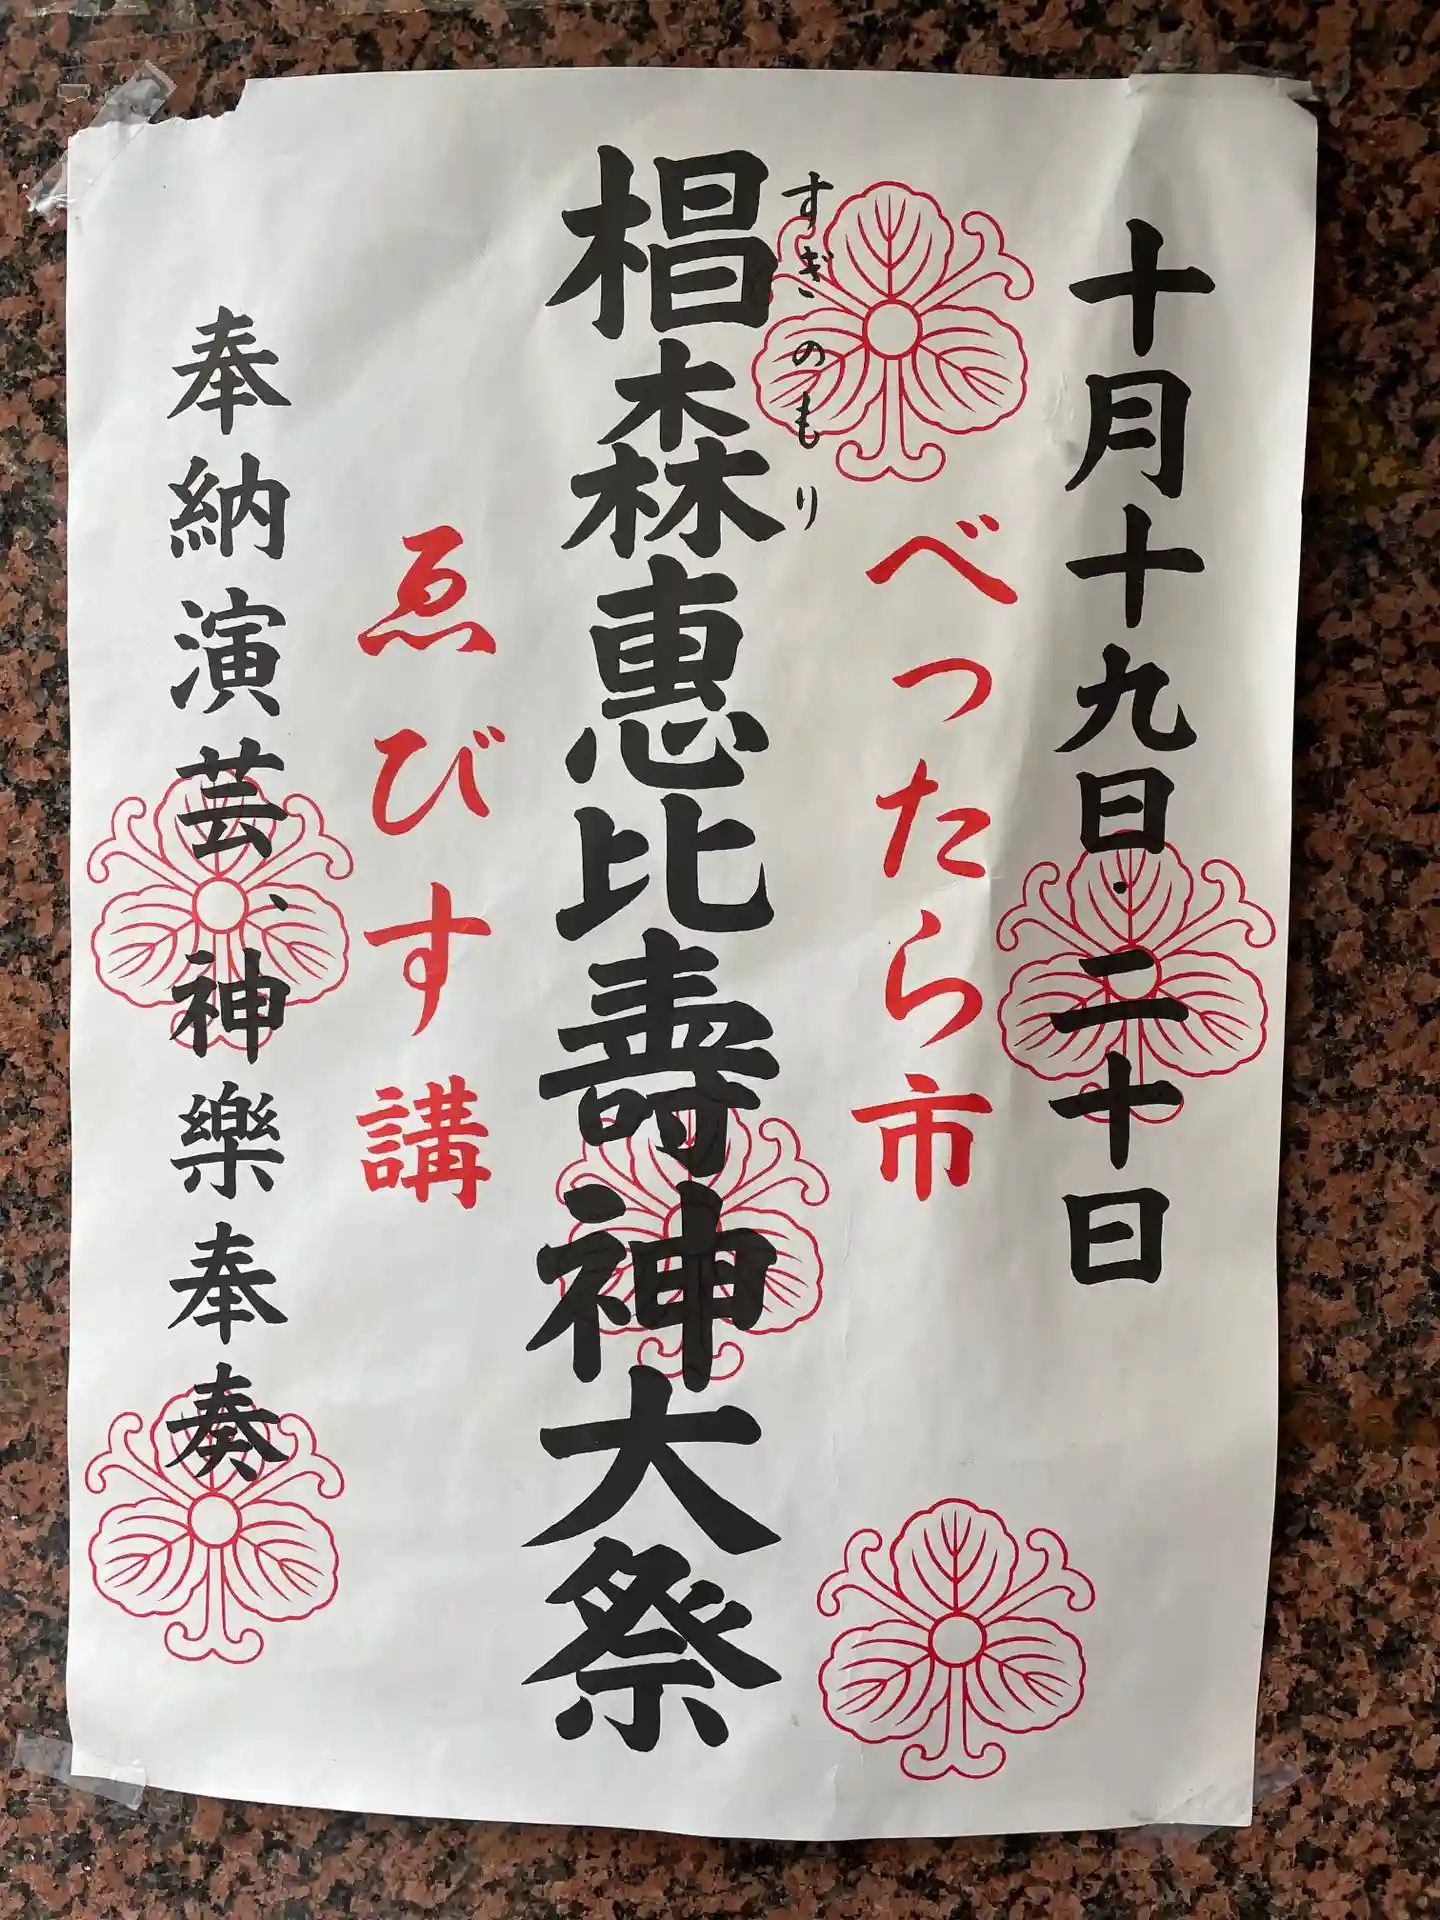 十月十九日・二十日
べったら市
すぎのもり
椙森恵比壽神大祭
ゑびす講
奉納演芸、神樂奉奏